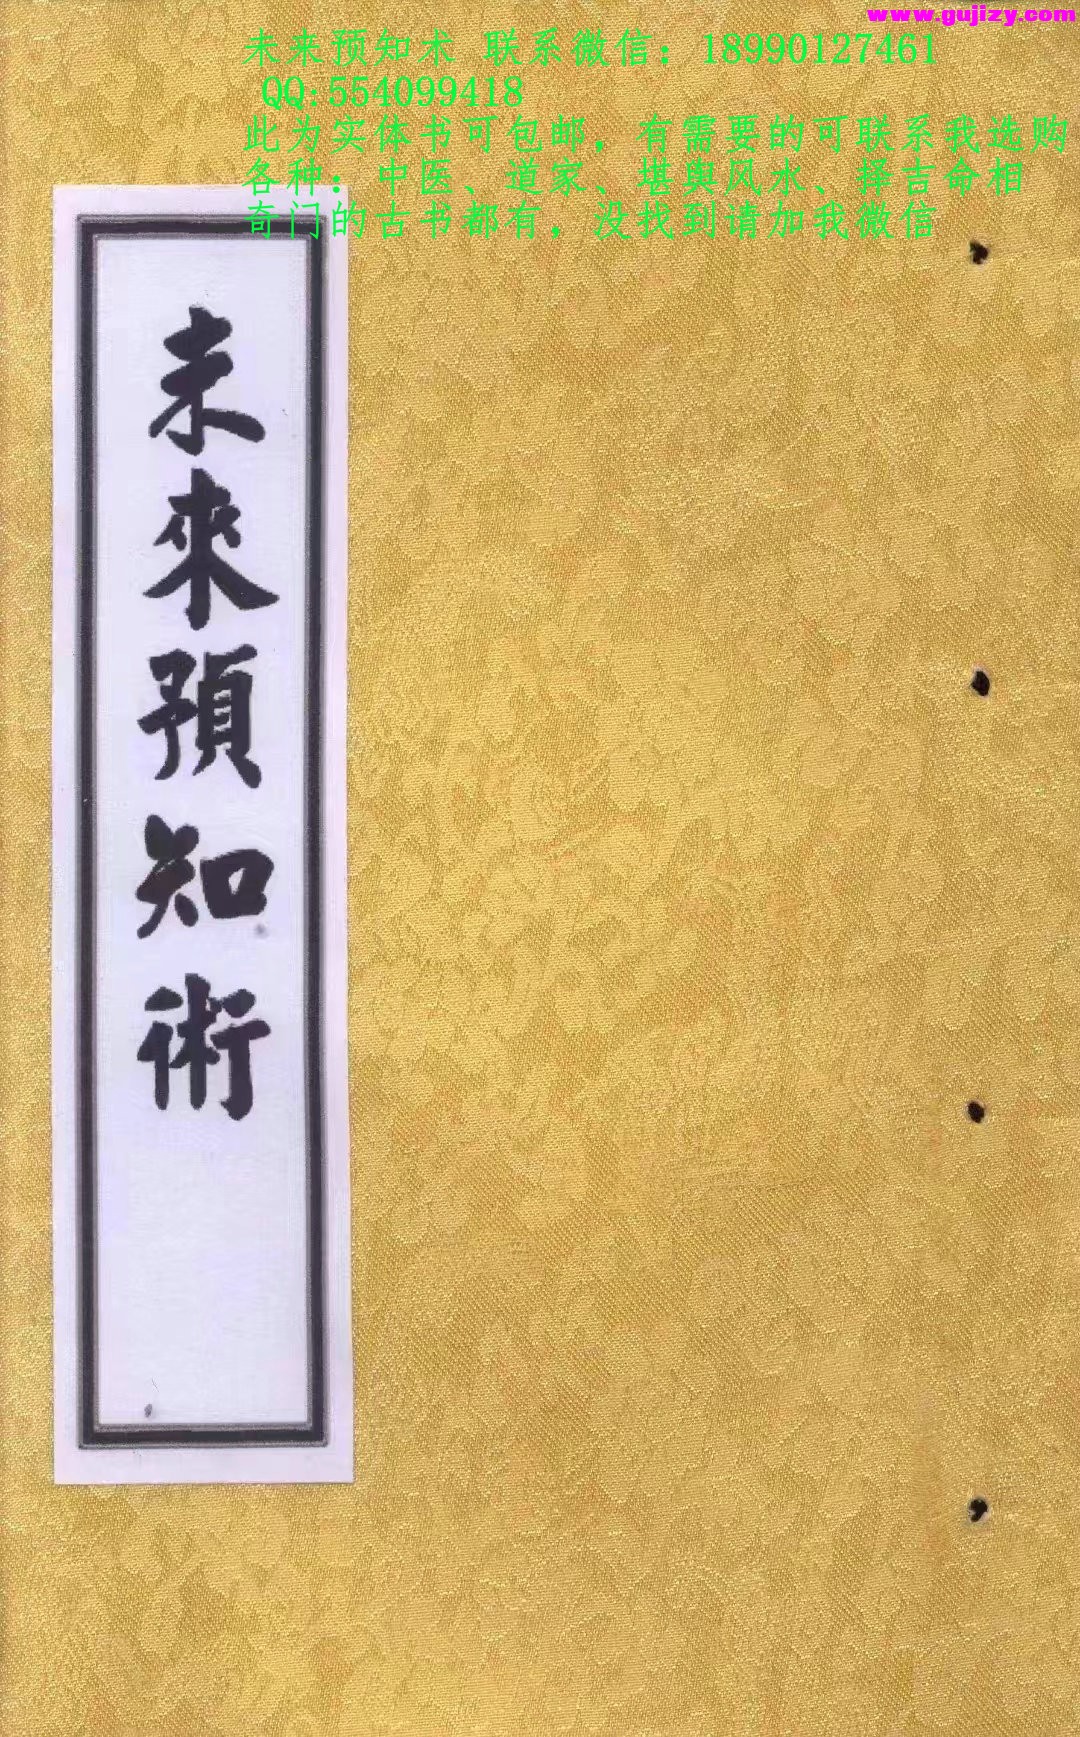 www.gujizy.com
未来预知术 联系微信：18990127461
QQ:554099418
此为实体书可包邮，有需要的可联系我选购
各种：中医、道家、堪舆风水、择吉命相
奇门的古书都有，没找到请加我微信
未來預知術